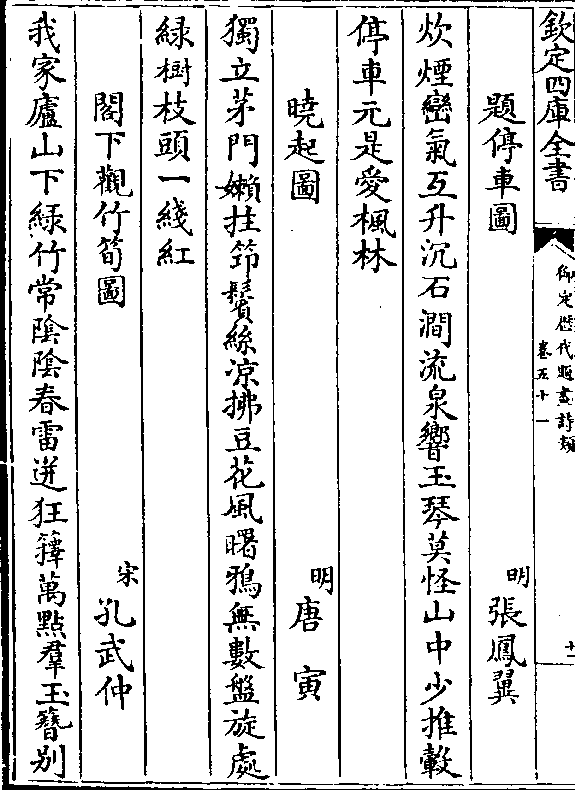 欽定四庫全書
御定歷代題畫詩類
卷五十一
十一
題停車圖
明張鳳翼
炊煙巒氣互升沉石澗流泉響玉琴莫怪山中少推轂
停車元是愛楓林
曉起圖
明唐寅
獨立茅門嬾拄筇鬢絲凉拂豆花風曙鴉無數盤旋處
緑樹枝頭一綫紅
閣下觀竹筍圖
宋孔武仲
我家廬山下緑竹常陰陰春雷迸狂籜萬點羣玉簪别